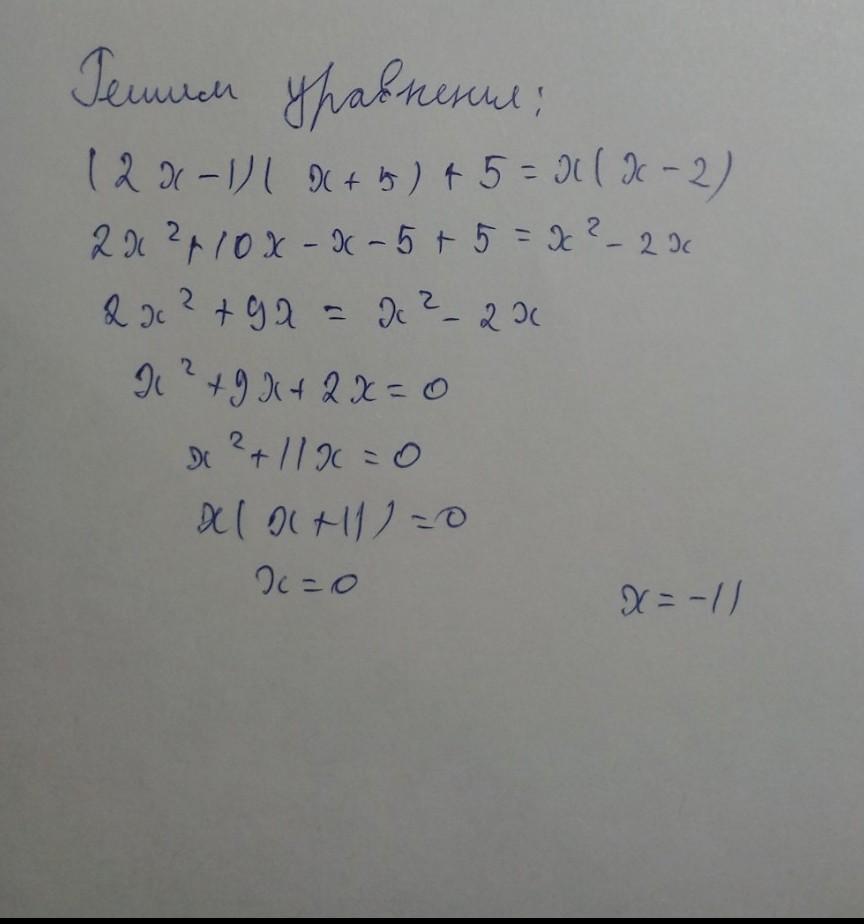 Решим уравнения:
(2x-1)(x+5)+5=x(x-2)
2x²+10x-x-5+5=x²-2x
2x²+9x=x²-2x
x²+9x+2x=0
x²+11x=0
x(x+11)=0
x=0 x=-11